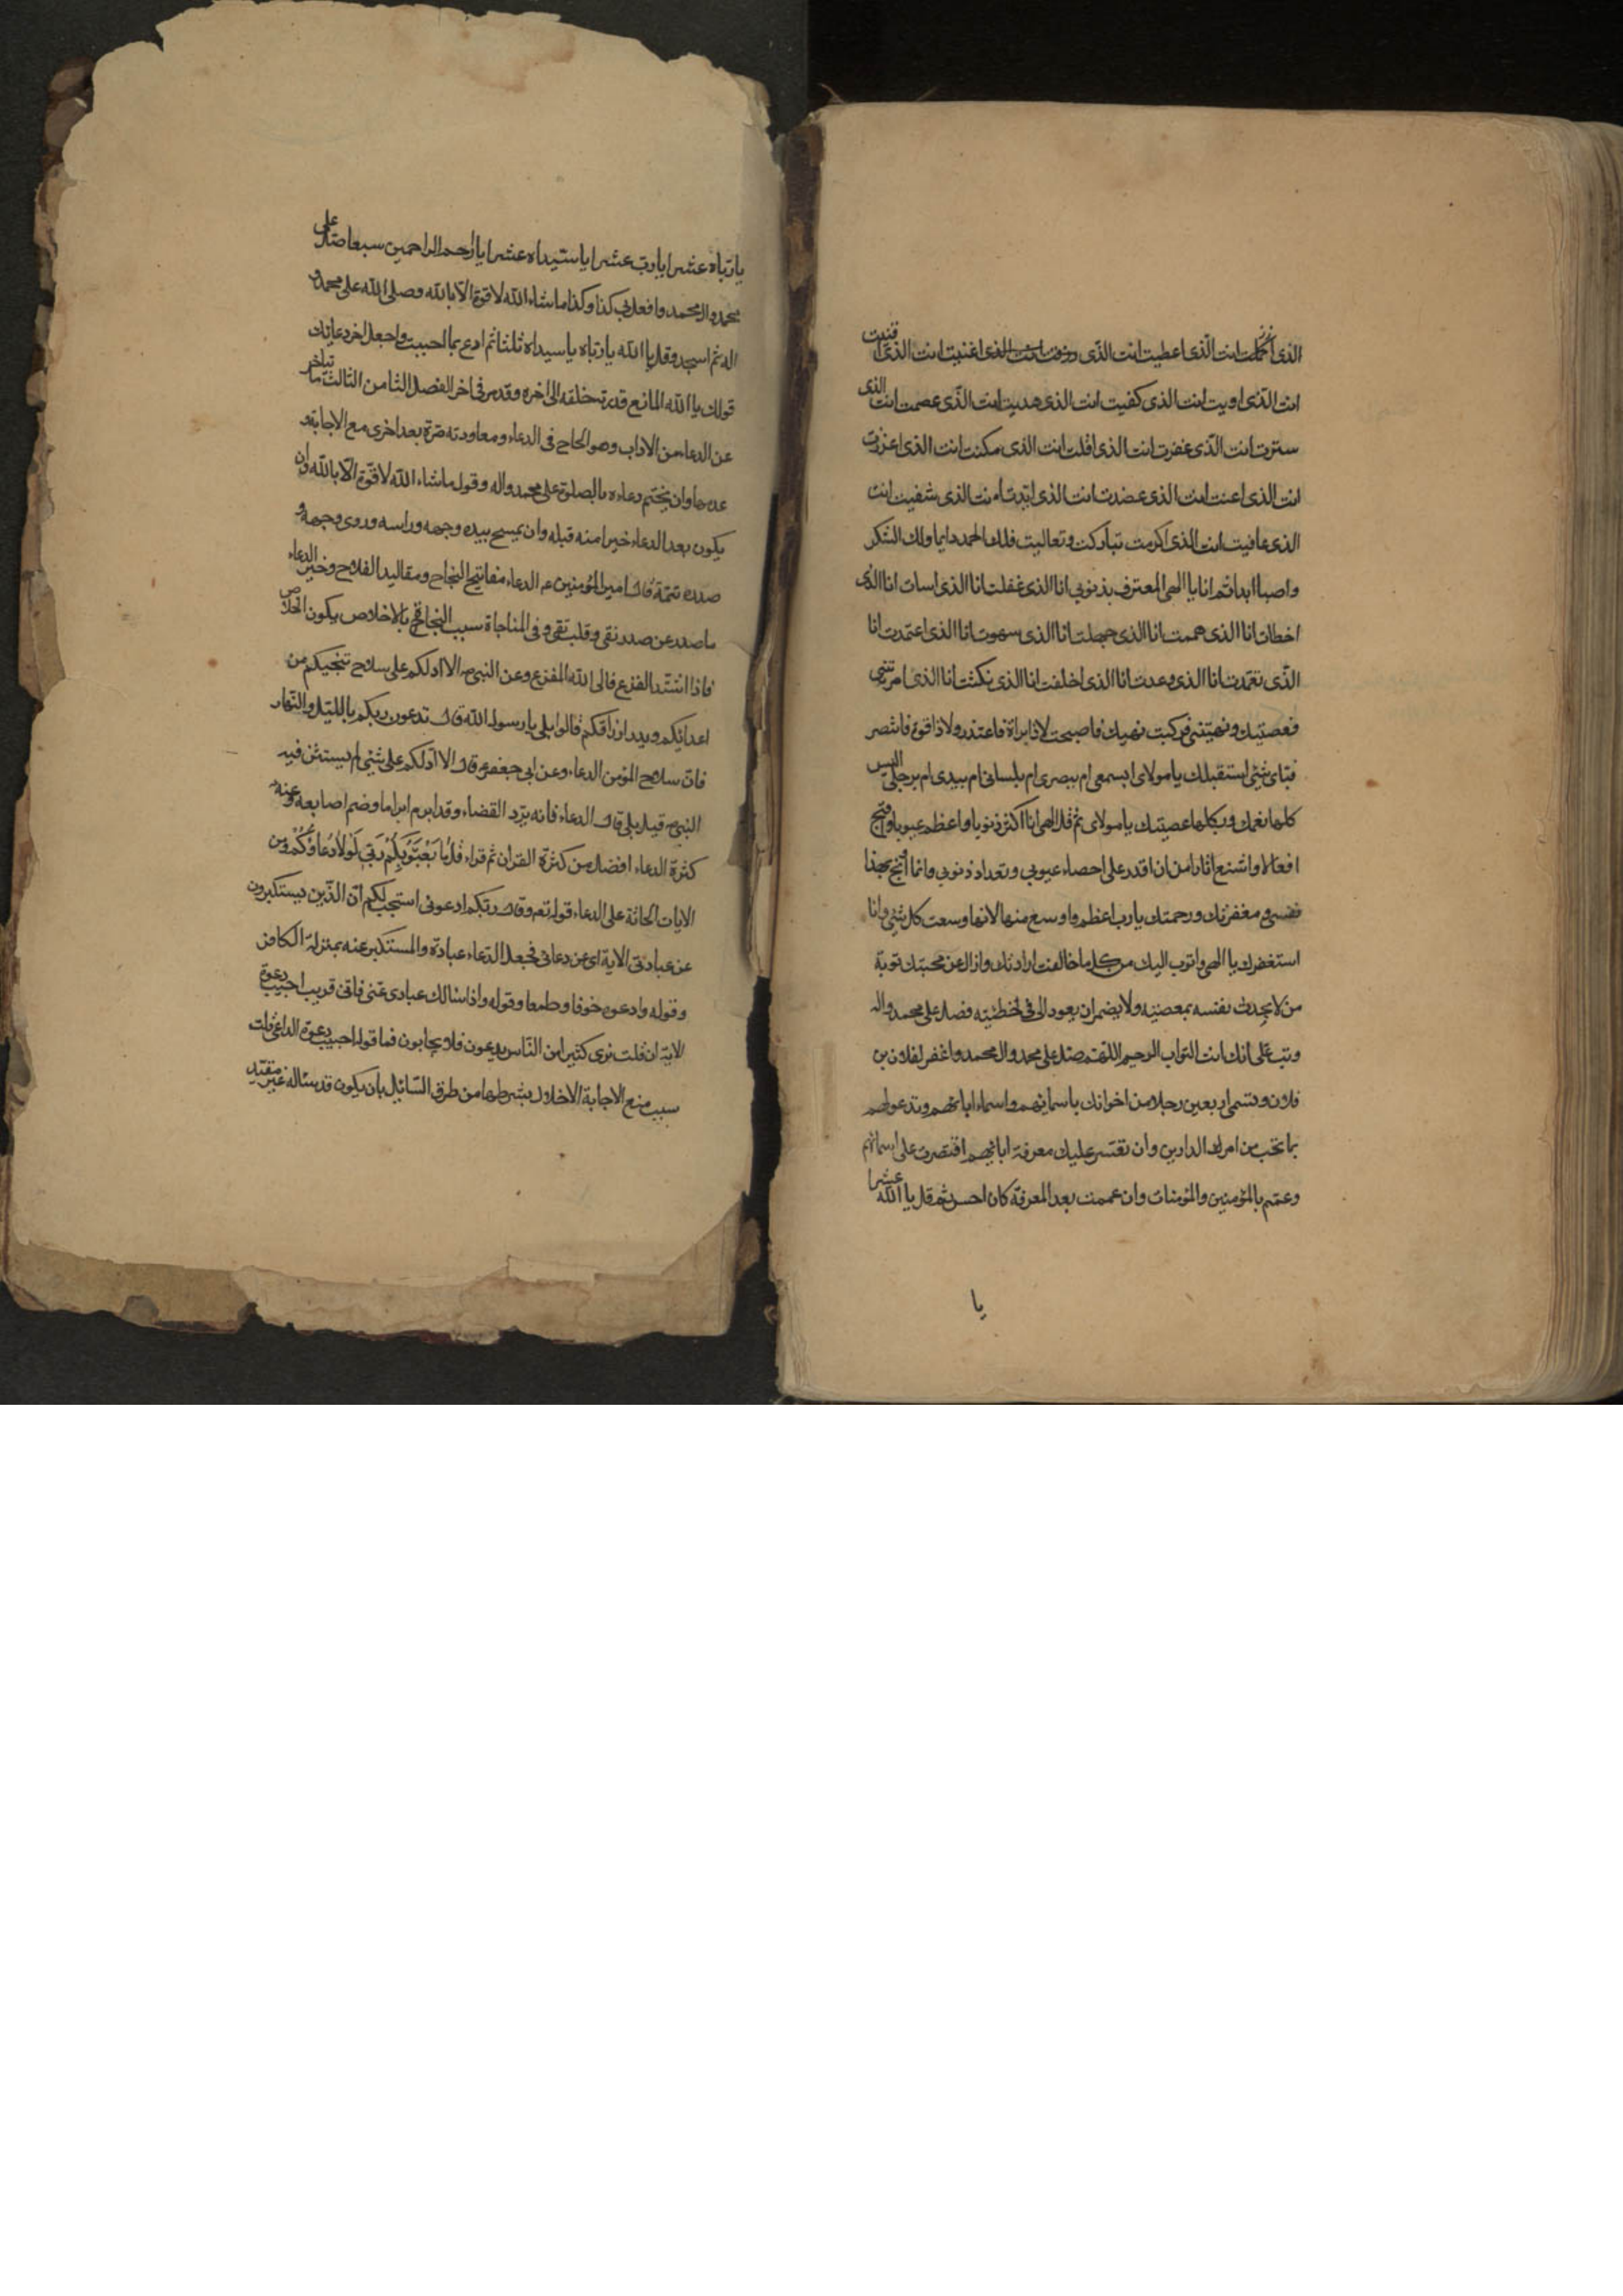 الذى اكملت انت الذى اعطيت انت الذى رزقت انت الذى اغنيت انت الذى اقنيت
انت الذى اويت انت الذى كفيت انت الذى هديت انت الذى عصمت انت الذى
سترت انت الذى غفرت انت الذى اقلت انت الذى مكنت انت الذى اعززت
انت الذى اعنت انت الذى عضدت انت الذى ايدت انت الذى شفيت انت
الذى عافيت انت الذى اكرمت تباركت وتعاليت فلك الحمد دايما ولك الشكر
واصبا ابدا ثم انا يا الهى المعترف بذنوبى انا الذى غفلت انا الذى اسات انا الذى
اخطات انا الذى هممت انا الذى جهلت انا الذى سهوت انا الذى اعتمدت انا
الذى تعمدت انا الذى وعدت انا الذى اخلفت انا الذى نكثت انا الذى امرتنى
فعصيتك ونهيتنى فركبت نهيك فاصبحت لا ذا براة فاعتذر ولا ذا قوة فانتصر
فباى شئ استقبلك يا مولاى ابسمعى ام ببصرى ام بلسانى ام بيدى ام برجلى اليس
كلها نعمك وبكلها عصيتك يا مولاى ثم قل الهى انا اكثر ذنوبا واعظم عيوبا واقبح
افعالا واشنع اثارا من ان اقدر على احصاء عيوبى وتعداد ذنوبى وانما اوبخ بهذا
نفسى ومغفرتك ورحمتك يا رب اعظم واوسع منها لانها وسعت كل شئ وانا
استغفرك يا الهى واتوب اليك من كل ما خالفت ارادتك وازال عن محبتك توبة
من لا يحدث نفسه بمعصيته ولا يضمر ان يعود الى فى خطيئته فصل على محمد واله
وتب على انك انت التواب الرحيم اللهم صل على محمد وال محمد واغفر لفلان بن
فلان وتسمى اربعين رجلا من اخوانك باسمائهم واسماء ابائهم وتدعو لهم
بما تحب من امر الدارين وان تعسر عليك معرفة ابائهم اقتصرت على اسمائهم
وعمتم بالمؤمنين والمؤمنات وان عممت بعد المعرفة كان احسن ثم قل يا الله عشرا
يا
يا رباه عشرا يا رب عشرا يا سيداه عشرا يا ارحم الراحمين سبعا صل على
محمد وال محمد وافعل بى كذا وكذا ما شاء الله لا قوة الا بالله وصلى الله على محمد و
اله ثم اسجد وقل يا الله يا رباه يا سيداه ثلثا ثم ادع بما احببت واجعل اخر دعائك
قولك يا الله المانع قدرته خلقه الى اخره وقد مر فى اخر الفصل الثامن الثالث ما يتاخر
عن الدعاء من الاداب وهو الحاح فى الدعاء ومعاودته مرة بعد اخرى مع الاجابة و
عدمها وان يختم دعاءه بالصلوة على محمد واله وقول ما شاء الله لا قوة الا بالله وان
يكون بعد الدعاء خيرا منه قبله وان يمسح بيده وجهه وراسه وروى وجهه و
صدره تتمة قال امير المؤمنين ع الدعاء مفاتيح النجاح ومقاليد الفلاح وخير الدعاء
ما صدر عن صدر نقى وقلب تقى وفى المناجاة سبب النجاة وبالاخلاص يكون الخلاص
فاذا اشتد الفزع فالى الله المفزع وعن النبى ص الا ادلكم على سلاح تنجيكم من
اعدائكم ويدر ارزاقكم قالوا بلى يا رسول الله قال تدعون ربكم بالليل والنهار
فان سلاح المؤمن الدعاء وعن ابى جعفر ع قال الا ادلكم على شئ لم يستثن فيه
النبى ص قيل بلى قال الدعاء فانه يرد القضاء وقد ابرم ابراما وضم اصابعه وعنه ع
كثرة الدعاء افضل من كثرة القران ثم قراء قُلْ مَا يَعْبَؤُ بِكُمْ رَبِّى لَوْلَا دُعَاؤُكُمْ ومن
الايات الحاثة على الدعاء قوله تعم وقال ربكم ادعونى استجب لكم ان الذين يستكبرون
عن عبادتى الاية اى عن دعائى فجعل الدعاء عبادة والمستكبر عنه بمنزلة الكافر
وقوله وادعوه خوفا وطمعا وقوله واذا سالك عبادى عنى فانى قريب اجيب دعوة
الاية ان قلت نرى كثيرا من الناس يدعون فلا يجابون فما قوله اجيب دعوة الداعى قلت
سبب منع الاجابة الاخلال بشرطها من طرق السائل بان يكون قد ساله غير متقيد